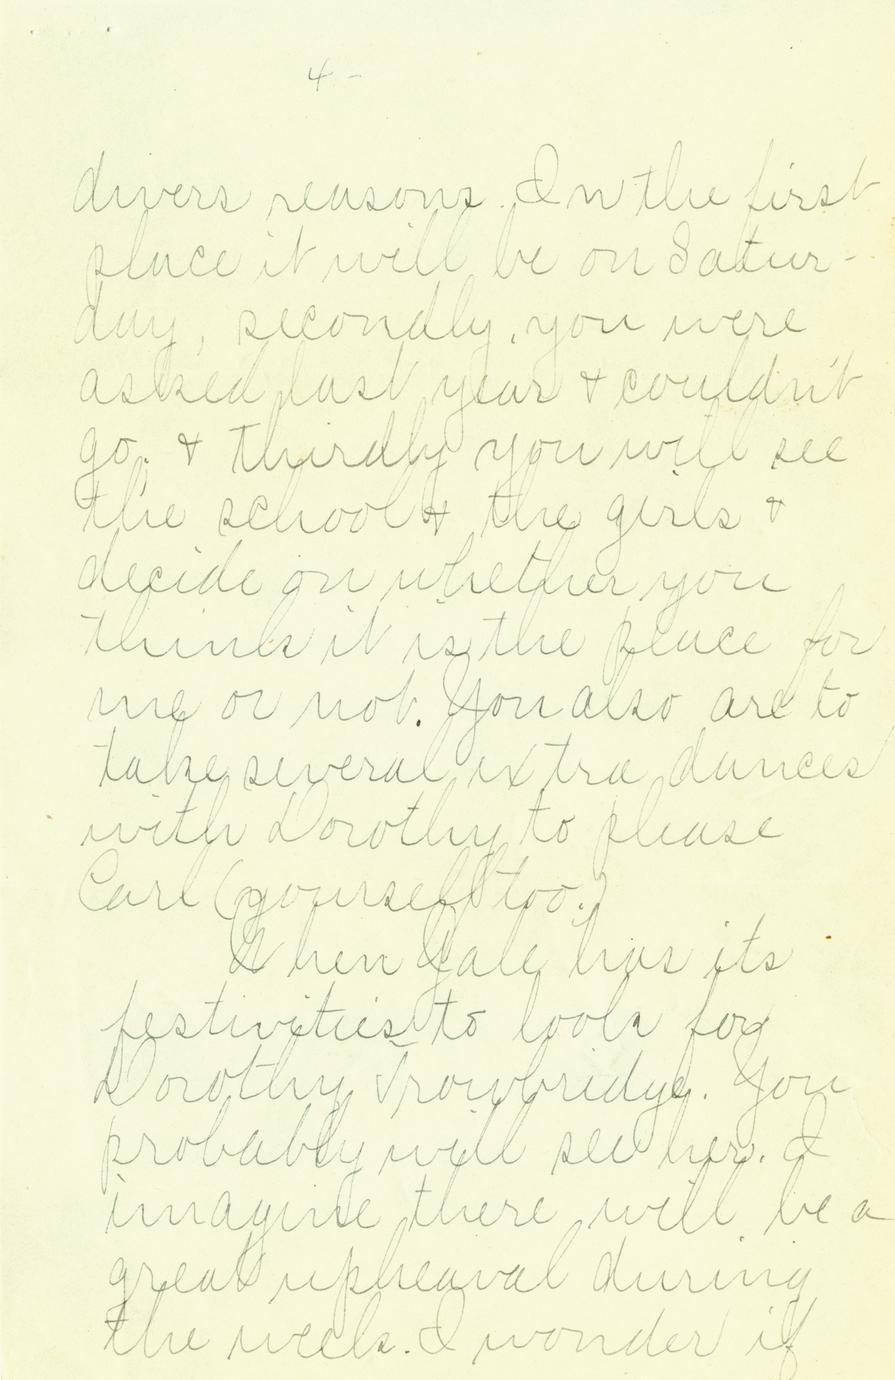 4 -
divers reasons. In the first
place it will be on Satur-
day, secondly, you were
asked last year & couldn't
go. & thirdly you will see
the school & the girls &
decide on whether you
think it is the place for
me or not. You also are to
take several extra dances
with Dorothy to please
Carl (yourself too.)
When Yale has its
festivities to look for
Dorothy Trowbridge. You
probably will see her. I
imagine there will be a
great upheaval during
the week. I wonder if